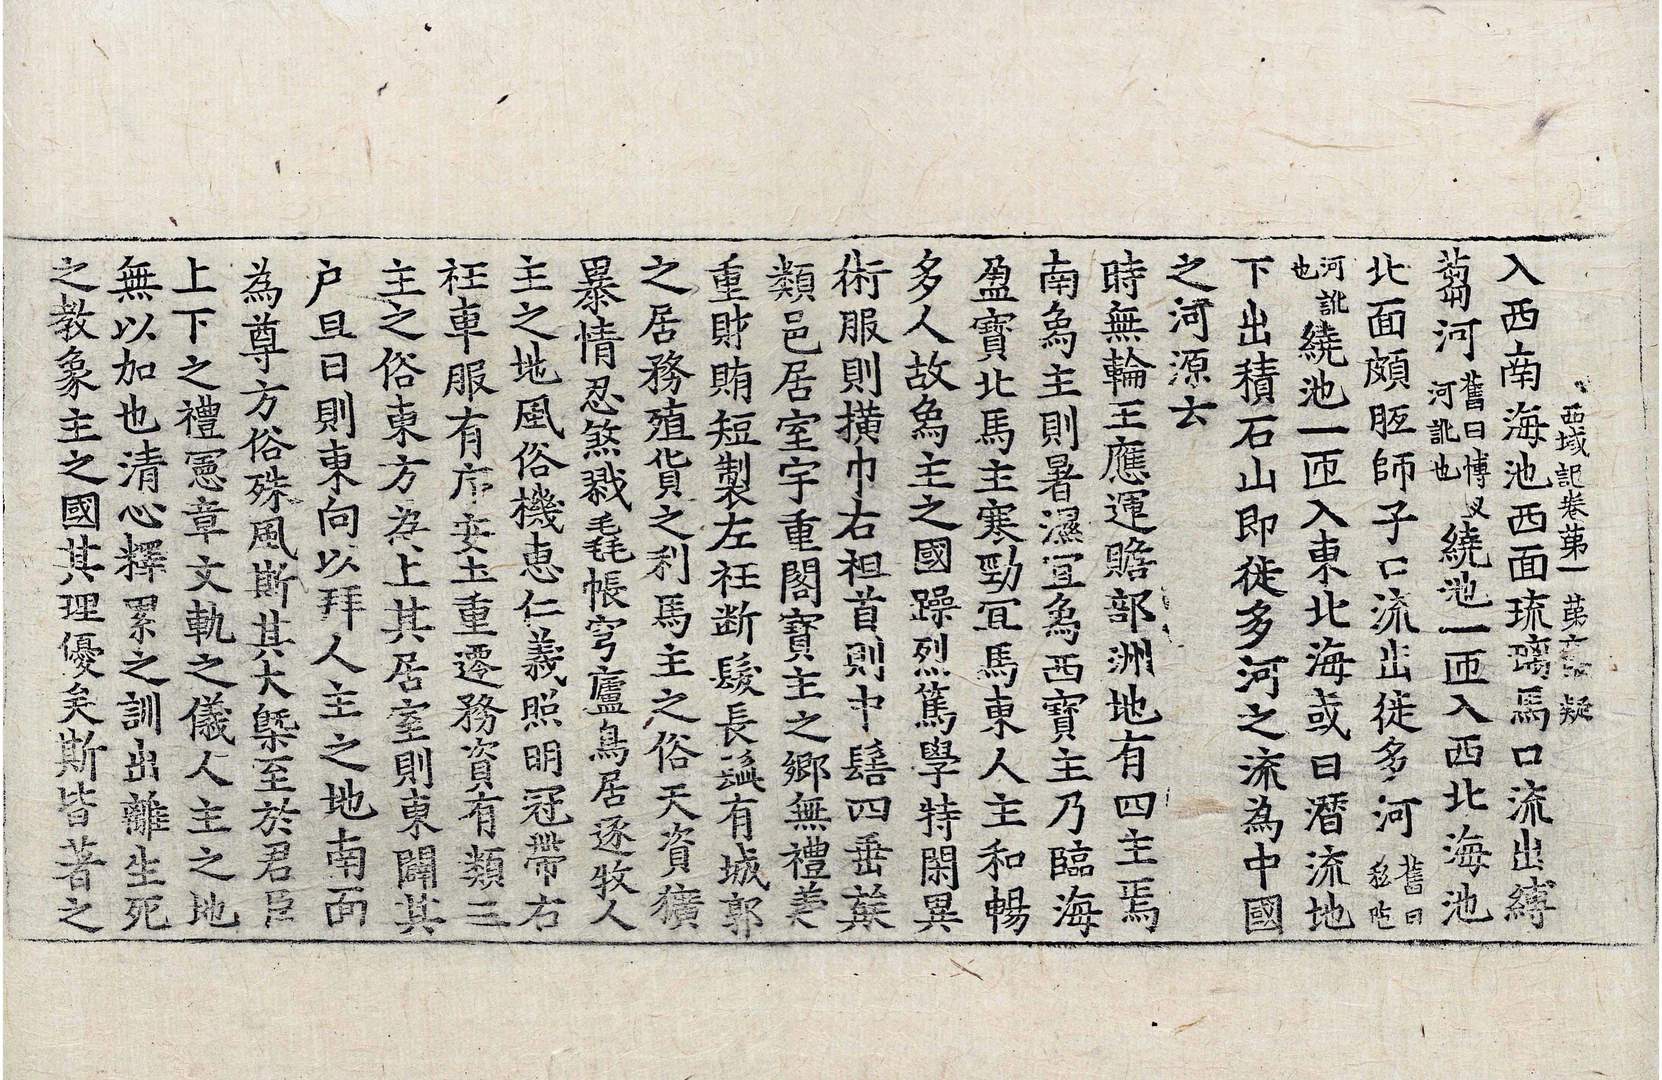 西域記卷第一 第六張 疑
入西南海池西面琉璃馬口流出縛
蒭河舊曰博叉河訛也繞池一匝入西北海池
北面頗胝師子口流出徙多河舊曰私陁
河訛也繞池一匝入東北海或曰潛流地
下出積石山即徙多河之流為中國
之河源云
時無輪王應運贍部洲地有四主焉
南象主則暑濕宜象西寶主乃臨海
盈寶北馬主寒勁宜馬東人主和暢
多人故象主之國躁烈篤學特閑異
術服則橫巾右袒首則中髻四垂族
類邑居室宇重閣寶主之鄉無禮義
重財賄短製左衽断髮長髭有城郭
之居務殖貨之利馬主之俗天資獷
暴情忍煞戮毳帳穹廬鳥居逐牧人
主之地風俗機惠仁義照明冠帶右
衽車服有序安土重遷務資有類三
主之俗東方為上其居室則東闢其
户旦日則東向以拜人主之地南面
為尊方俗殊風斯其大槩至於君臣
上下之禮憲章文軌之儀人主之地
無以加也清心釋累之訓出離生死
之教象主之國其理優矣斯皆著之